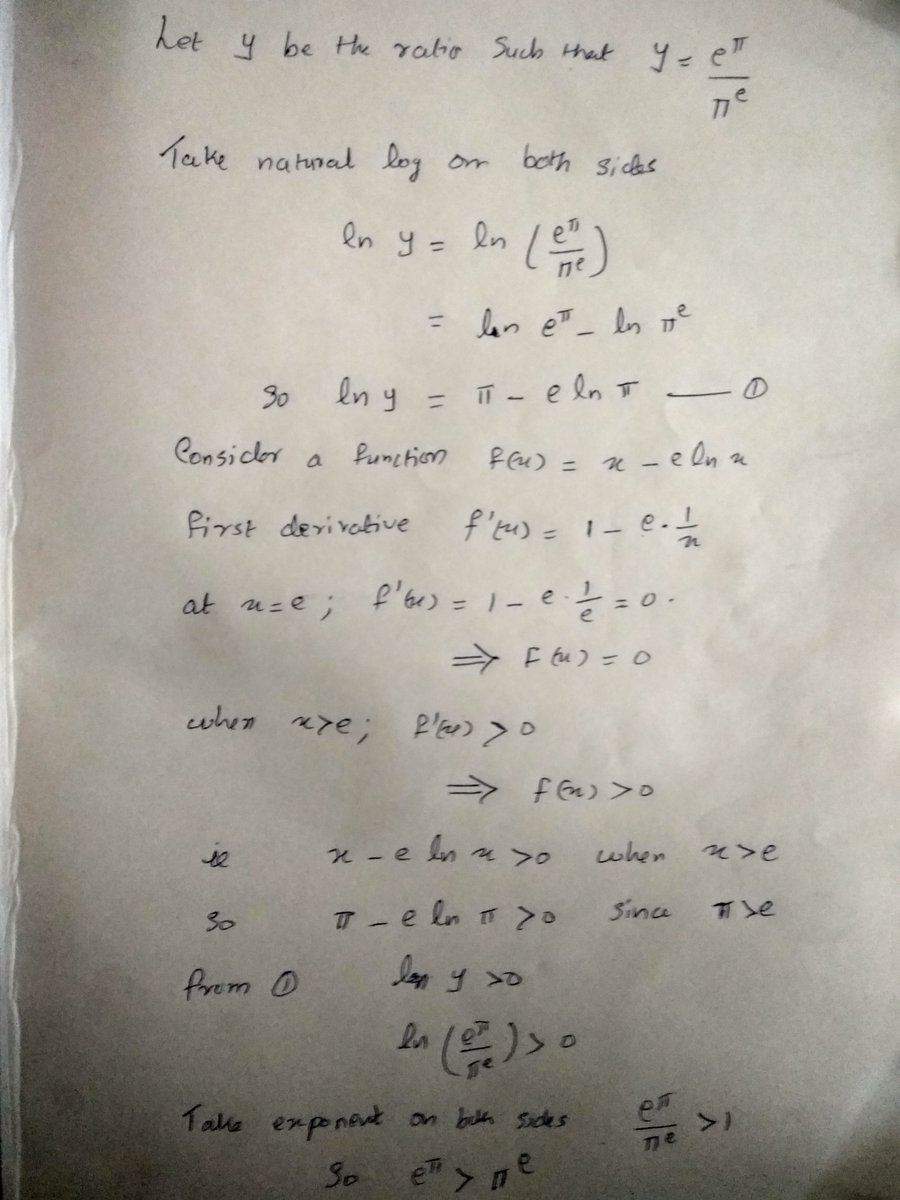 Let y be the ratio Such that y = e^π / π^e
Take natural log on both sides
ln y = ln (e^π / π^e)
= ln e^π - ln π^e
So ln y = π - e ln π — ①
Consider a function f(x) = x - e ln x
first derivative f'(x) = 1 - e · 1/x
at x = e ; f'(x) = 1 - e · 1/e = 0.
⇒ F(x) = 0
when x > e ; f'(x) > 0
⇒ f(x) > 0
ie x - e ln x > 0 when x > e
So π - e ln π > 0 Since π > e
from ① ln y > 0
ln (e^π / π^e) > 0
Take exponent on both sides e^π / π^e > 1
So e^π > π^e